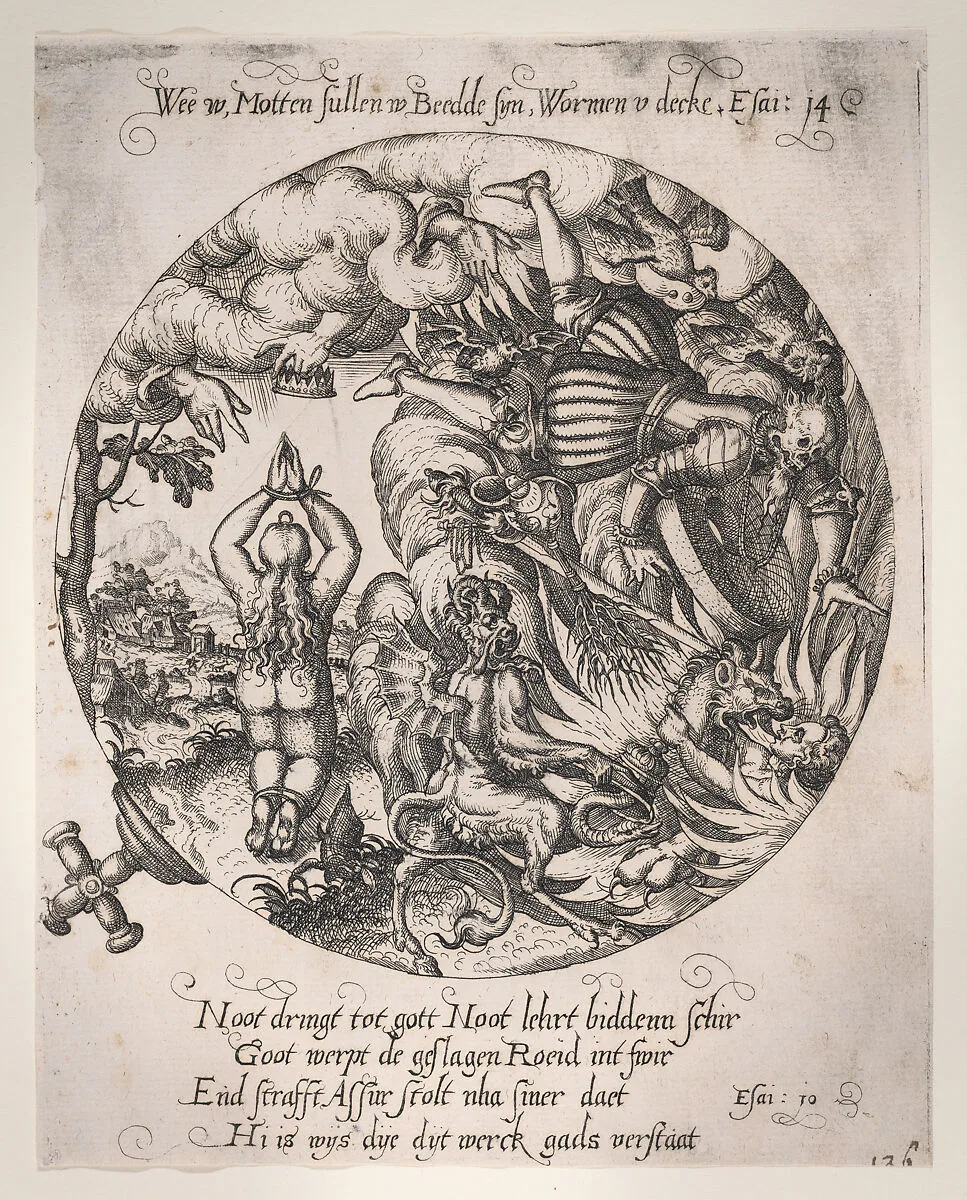 Wee w, Motten sullen w Beedde syn, Wormen v decke. Esai: 14
Noot dringt tot gott Noot lehrt biddenn schir
Goot werpt de geslagen Roeid int fwir
End strafft Assur stolt nha siner daet
Esai: 10
Hi is wÿs dÿe dÿt werck gads verstaat
136